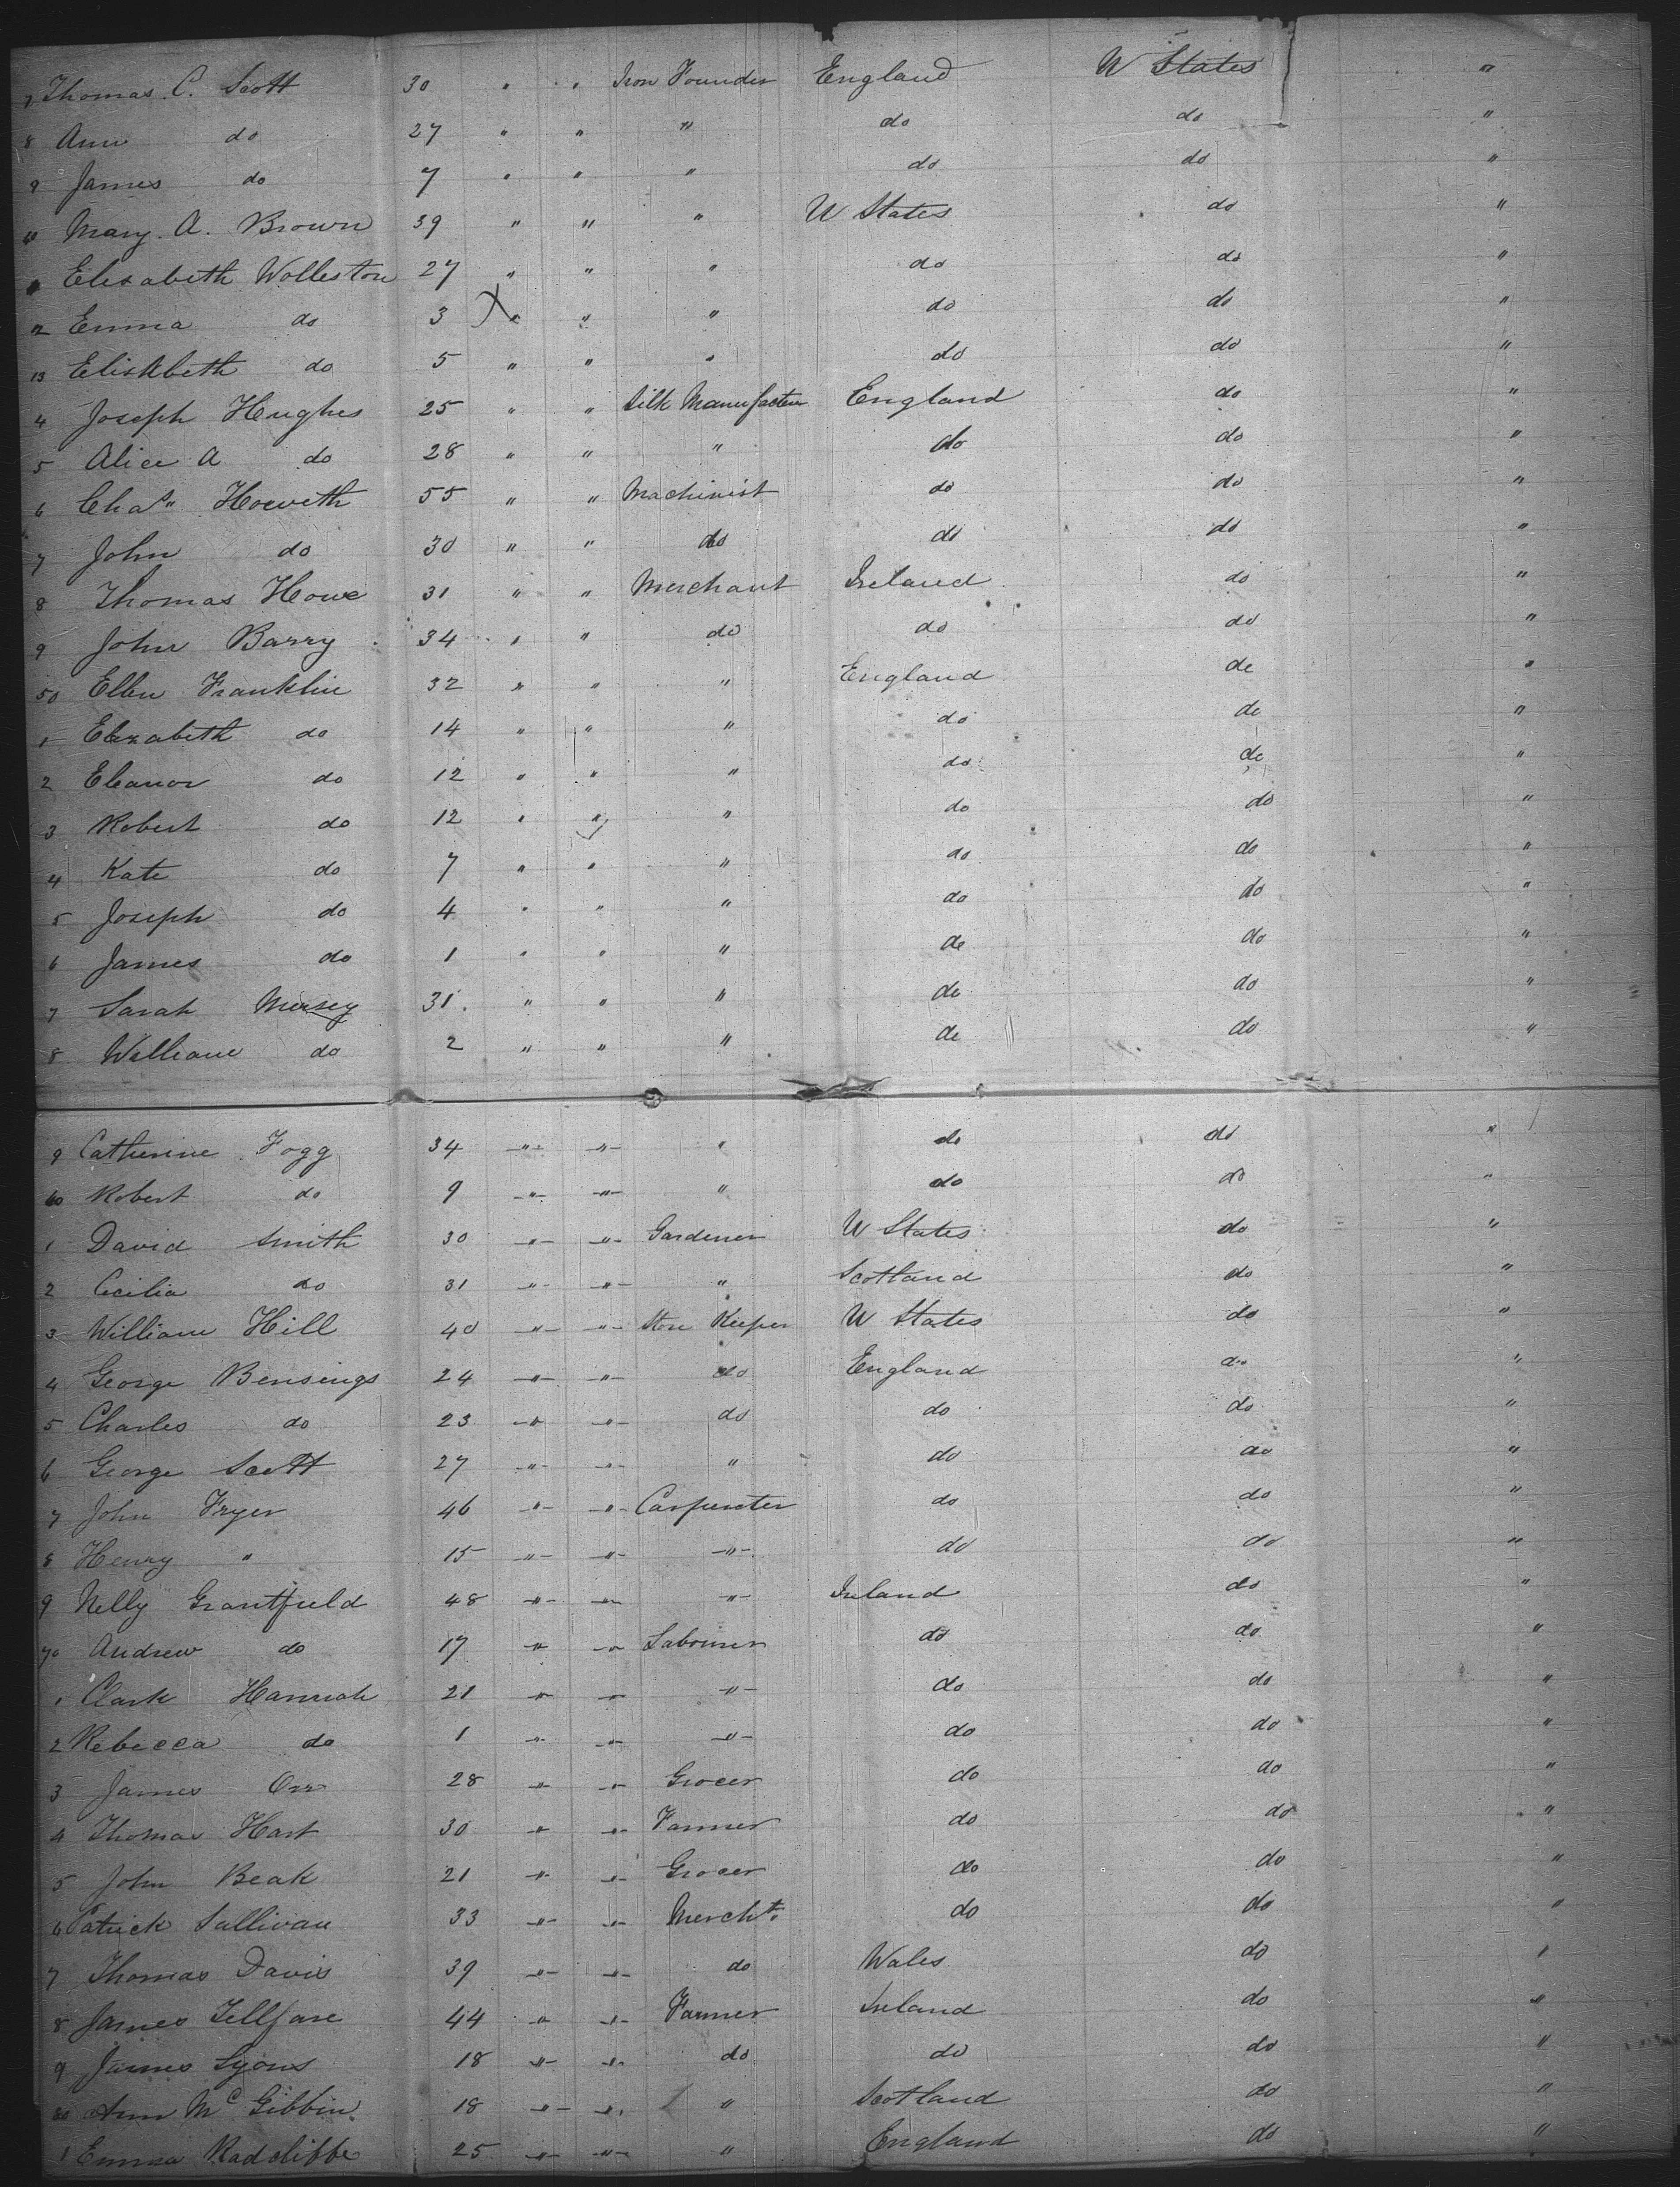 7 Thomas C. Scott 30 " " Iron Founder England U States "
8 Ann do 27 " " " do do "
9 James do 7 " " " do do "
40 Mary A. Brown 39 " " " U States do "
Elisabeth Wolleston 27 " " " do do "
12 Emma do 3 X " " " do do "
13 Elisabeth do 5 " " " do do "
4 Joseph Hughes 25 " " Silk Manufacteur England do "
5 Alice A do 28 " " " do do "
6 Chas Howeth 55 " " Machinist do do "
7 John do 30 " " do do do "
8 Thomas Howe 31 " " Merchant Ireland do "
9 John Barry 34 " " do do do "
50 Ellen Franklin 32 " " " England do "
1 Elizabeth do 14 " " " do do "
2 Eleanor do 12 " " " do do "
3 Robert do 12 " " " do do "
4 Kate do 7 " " " do do "
5 Joseph do 4 " " " do do "
6 James do 1 " " " do do "
7 Sarah Mersey 31 " " " do do "
8 William do 2 " " " do do "
9 Catherine Fogg 34 " " " do do "
60 Robert do 9 " " " do do "
1 David Smith 30 " " Gardener U States do "
2 Cecilia do 31 " " " Scotland do "
3 William Hill 40 " " Store Keeper U States do "
4 George Bensings 24 " " do England do "
5 Charles do 23 " " do do do "
6 George Scott 27 " " " do do "
7 John Fryer 46 " " Carpenter do do "
8 Henry " 15 " " " do do "
9 Nelly Grantfield 48 " " " Ireland do "
70 Andrew do 17 " " Labourer do do "
1 Clark Hannah 21 " " " do do "
2 Rebecca do 1 " " " do do "
3 James Orr 28 " " Grocer do do "
4 Thomas Hart 30 " " Farmer do do "
5 John Beak 21 " " Grocer do do "
6 Patrick Sullivan 33 " " Mercht. do do "
7 Thomas Davis 39 " " do Wales do "
8 James Tellfare 44 " " Farmer Ireland do "
9 James Lyons 18 " " do do do "
80 Ann McGibbin 18 " " " Scotland do "
1 Emma Radcliffe 25 " " " England do "